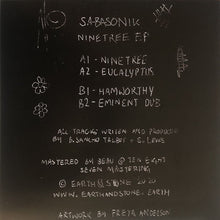 SABASONIK
NINETREE E.P
A1 - NINETREE
A2 - EUCALYPTIK
B1 - HAMWORTHY
B2 - EMINENT DUB
ALL TRACKS WRITTEN AND PRODUCED
B. SANCHO TALBOT + S. LEWIS
MASTERED BY BEAU @ TEN EIGHT
SEVEN MASTERING
© EARTH AND STONE 2020
WWW.EARTHANDSTONE.EARTH
ARTWORK BY FREYA ANDERSON